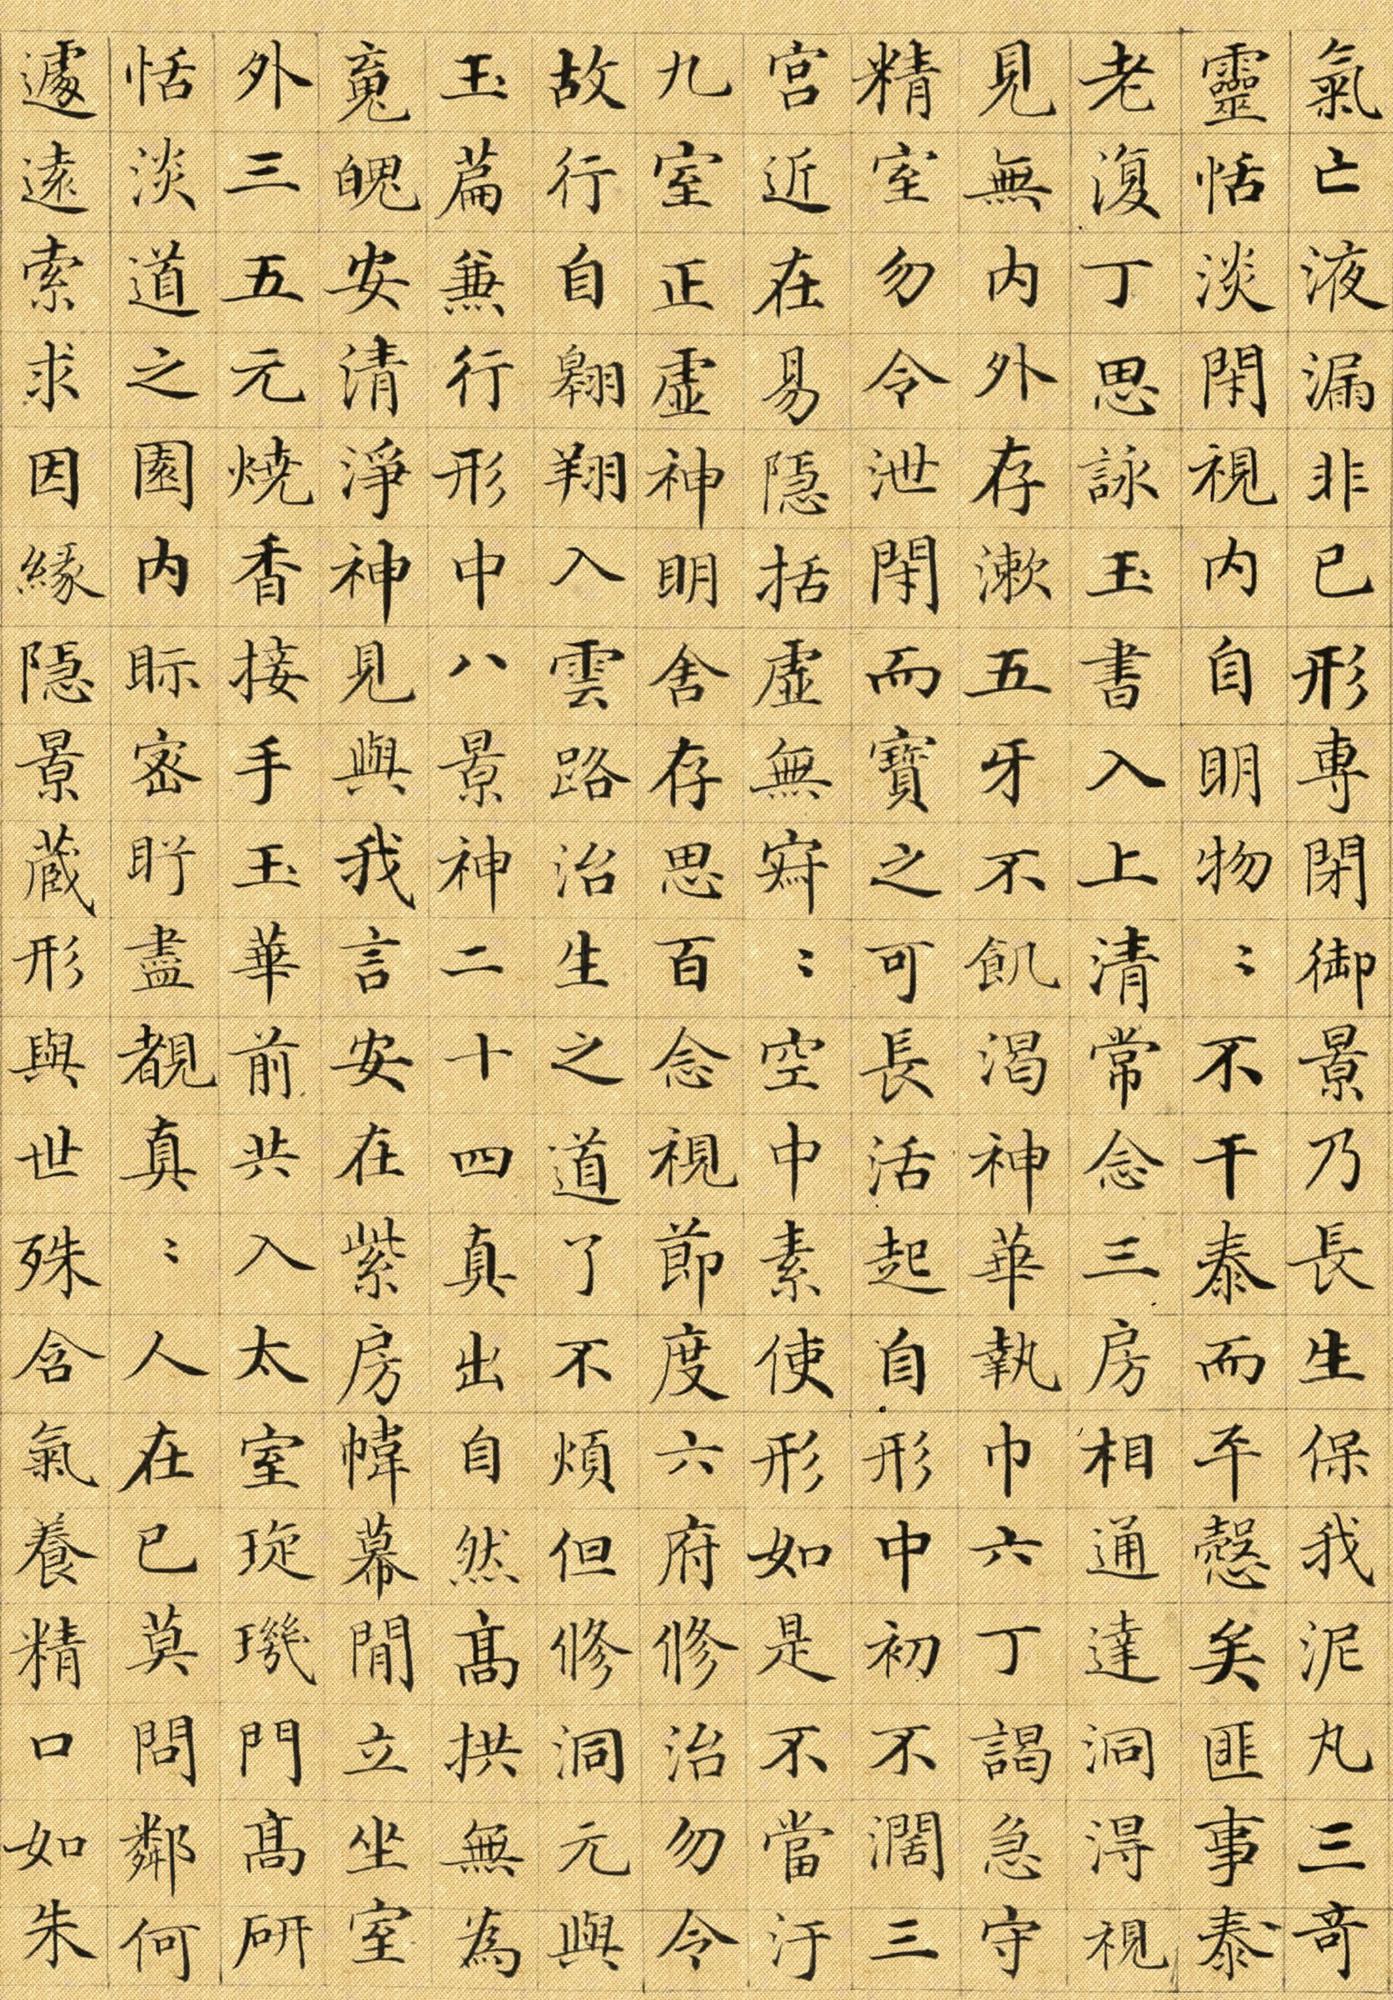 氣亡液漏非已形專閉御景乃長生保我泥丸三奇
靈恬淡閑視内自明物〻不干泰而平愨矣匪事泰
老復丁思詠玉書入上清常念三房相通達洞得視
見無内外存漱五牙不飢渴神華執巾六丁謁急守
精室勿令泄閑而寶之可長活起自形中初不濶三
宮近在易隱括虛無寂〻空中素使形如是不當汙
九室正虛神明舍存思百念視節度六府脩治勿令
故行自翱翔入雲路治生之道了不煩但脩洞元與
玉篇兼行形中八景神二十四真出自然髙拱無為
䰟魄安清淨神見與我言安在紫房幃幕閒立坐室
外三五元燒香接手玉華前共入太室琁璣門髙研
恬淡道之園内眎密盻盡覩真〻人在已莫問鄰何
遽遠索求因緣隱景藏形與世殊含氣養精口如朱